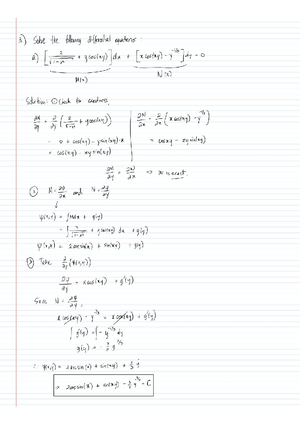 3) Solve the following differential equations:
a) [2/√(1-x²) + y cos(xy)] dx + [x cos(xy) - y^(-1/3)] dy = 0
M(x) N(x)
Solution: ① Check for exactness,
∂M/∂y = ∂/∂y (2/√(1-x²) + y cos(xy)) ∂N/∂x = ∂/∂x (x cos(xy) - y^(-1/3))
= 0 + cos(xy) - y sin(xy)·x = cos xy - xy sin(xy)
= cos(xy) - xy sin(xy)
∂M/∂y = ∂N/∂x ⇒ is exact.
and
ψ(x,y) = ∫ M dx + g(y)
= ∫ 2/√(1-x²) + y cos(xy) dx + g(y)
ψ(x,y) = 2 arcsin(x) + sin(xy) + g(y)
Take ∂/∂y (ψ(x,y))
∂ψ/∂y = x cos(xy) + g'(y)
Since N = ∂ψ/∂y,
x cos(xy) - y^(-1/3) = x cos(xy) + g'(y)
∫ g'(y) = ∫ - y^(-1/3) dy
g(y) = - 3/2 y^(2/3)
∴ ψ(x,y) = 2 arcsin(x) + sin(xy)
= 2 arcsin(x) + sin(xy) - 3/2 y^(2/3) = C